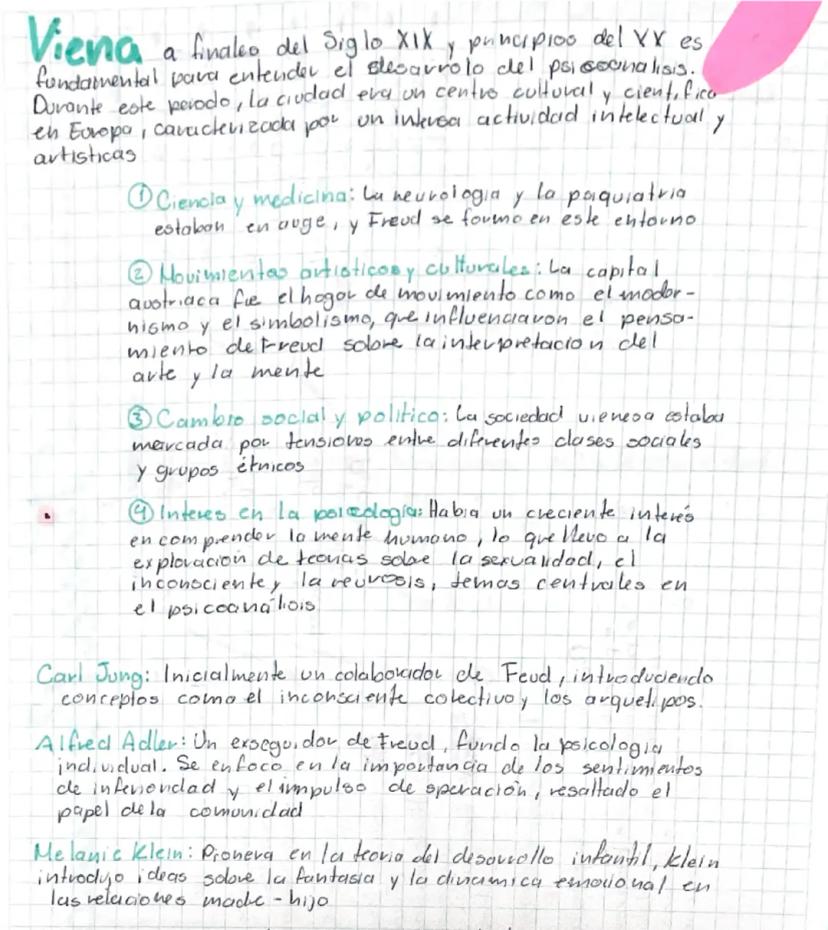 Viena a finales del Siglo XIX y principios del XX es
fundamental para entender el desarrolo del psicoanalisis.
Durante este periodo, la ciudad era un centro cultural y cientifico
en Europa, caracterizada por un intensa actividad intelectual y
artisticas
① Ciencia y medicina: La neurologia y la psiquiatria
estaban en auge, y Freud se formo en este entorno
② Movimientos artisticos y culturales: La capital
austriaca fue el hogar de movimiento como el moder-
nismo y el simbolismo, que influenciaron el pensa-
miento de Freud sobre la interpretacion del
arte y la mente
③ Cambio social y politico: La sociedad vienesa estaba
marcada por tensiones entre diferentes clases sociales
y grupos étnicos
④ Interes en la psicologia: Habia un creciente interés
en comprender la mente humana, lo que llevo a la
exploracion de teorias sobre la sexualidad, el
inconsciente y la neurosis, temas centrales en
el psicoanálisis
Carl Jung: Inicialmente un colaborador de Feud, introduciendo
conceptos como el inconsciente colectivo y los arquetipos.
Alfred Adler: Un exseguidor de Freud, fundo la psicologia
individual. Se enfoco en la importancia de los sentimientos
de inferioridad y el impulso de speración, resaltado el
papel de la comunidad
Melanie Klein: Pionera en la teoria del desarrollo infantil, Klein
introdujo ideas sobre la fantasia y la dinamica emocional en
las relaciones madre-hijo